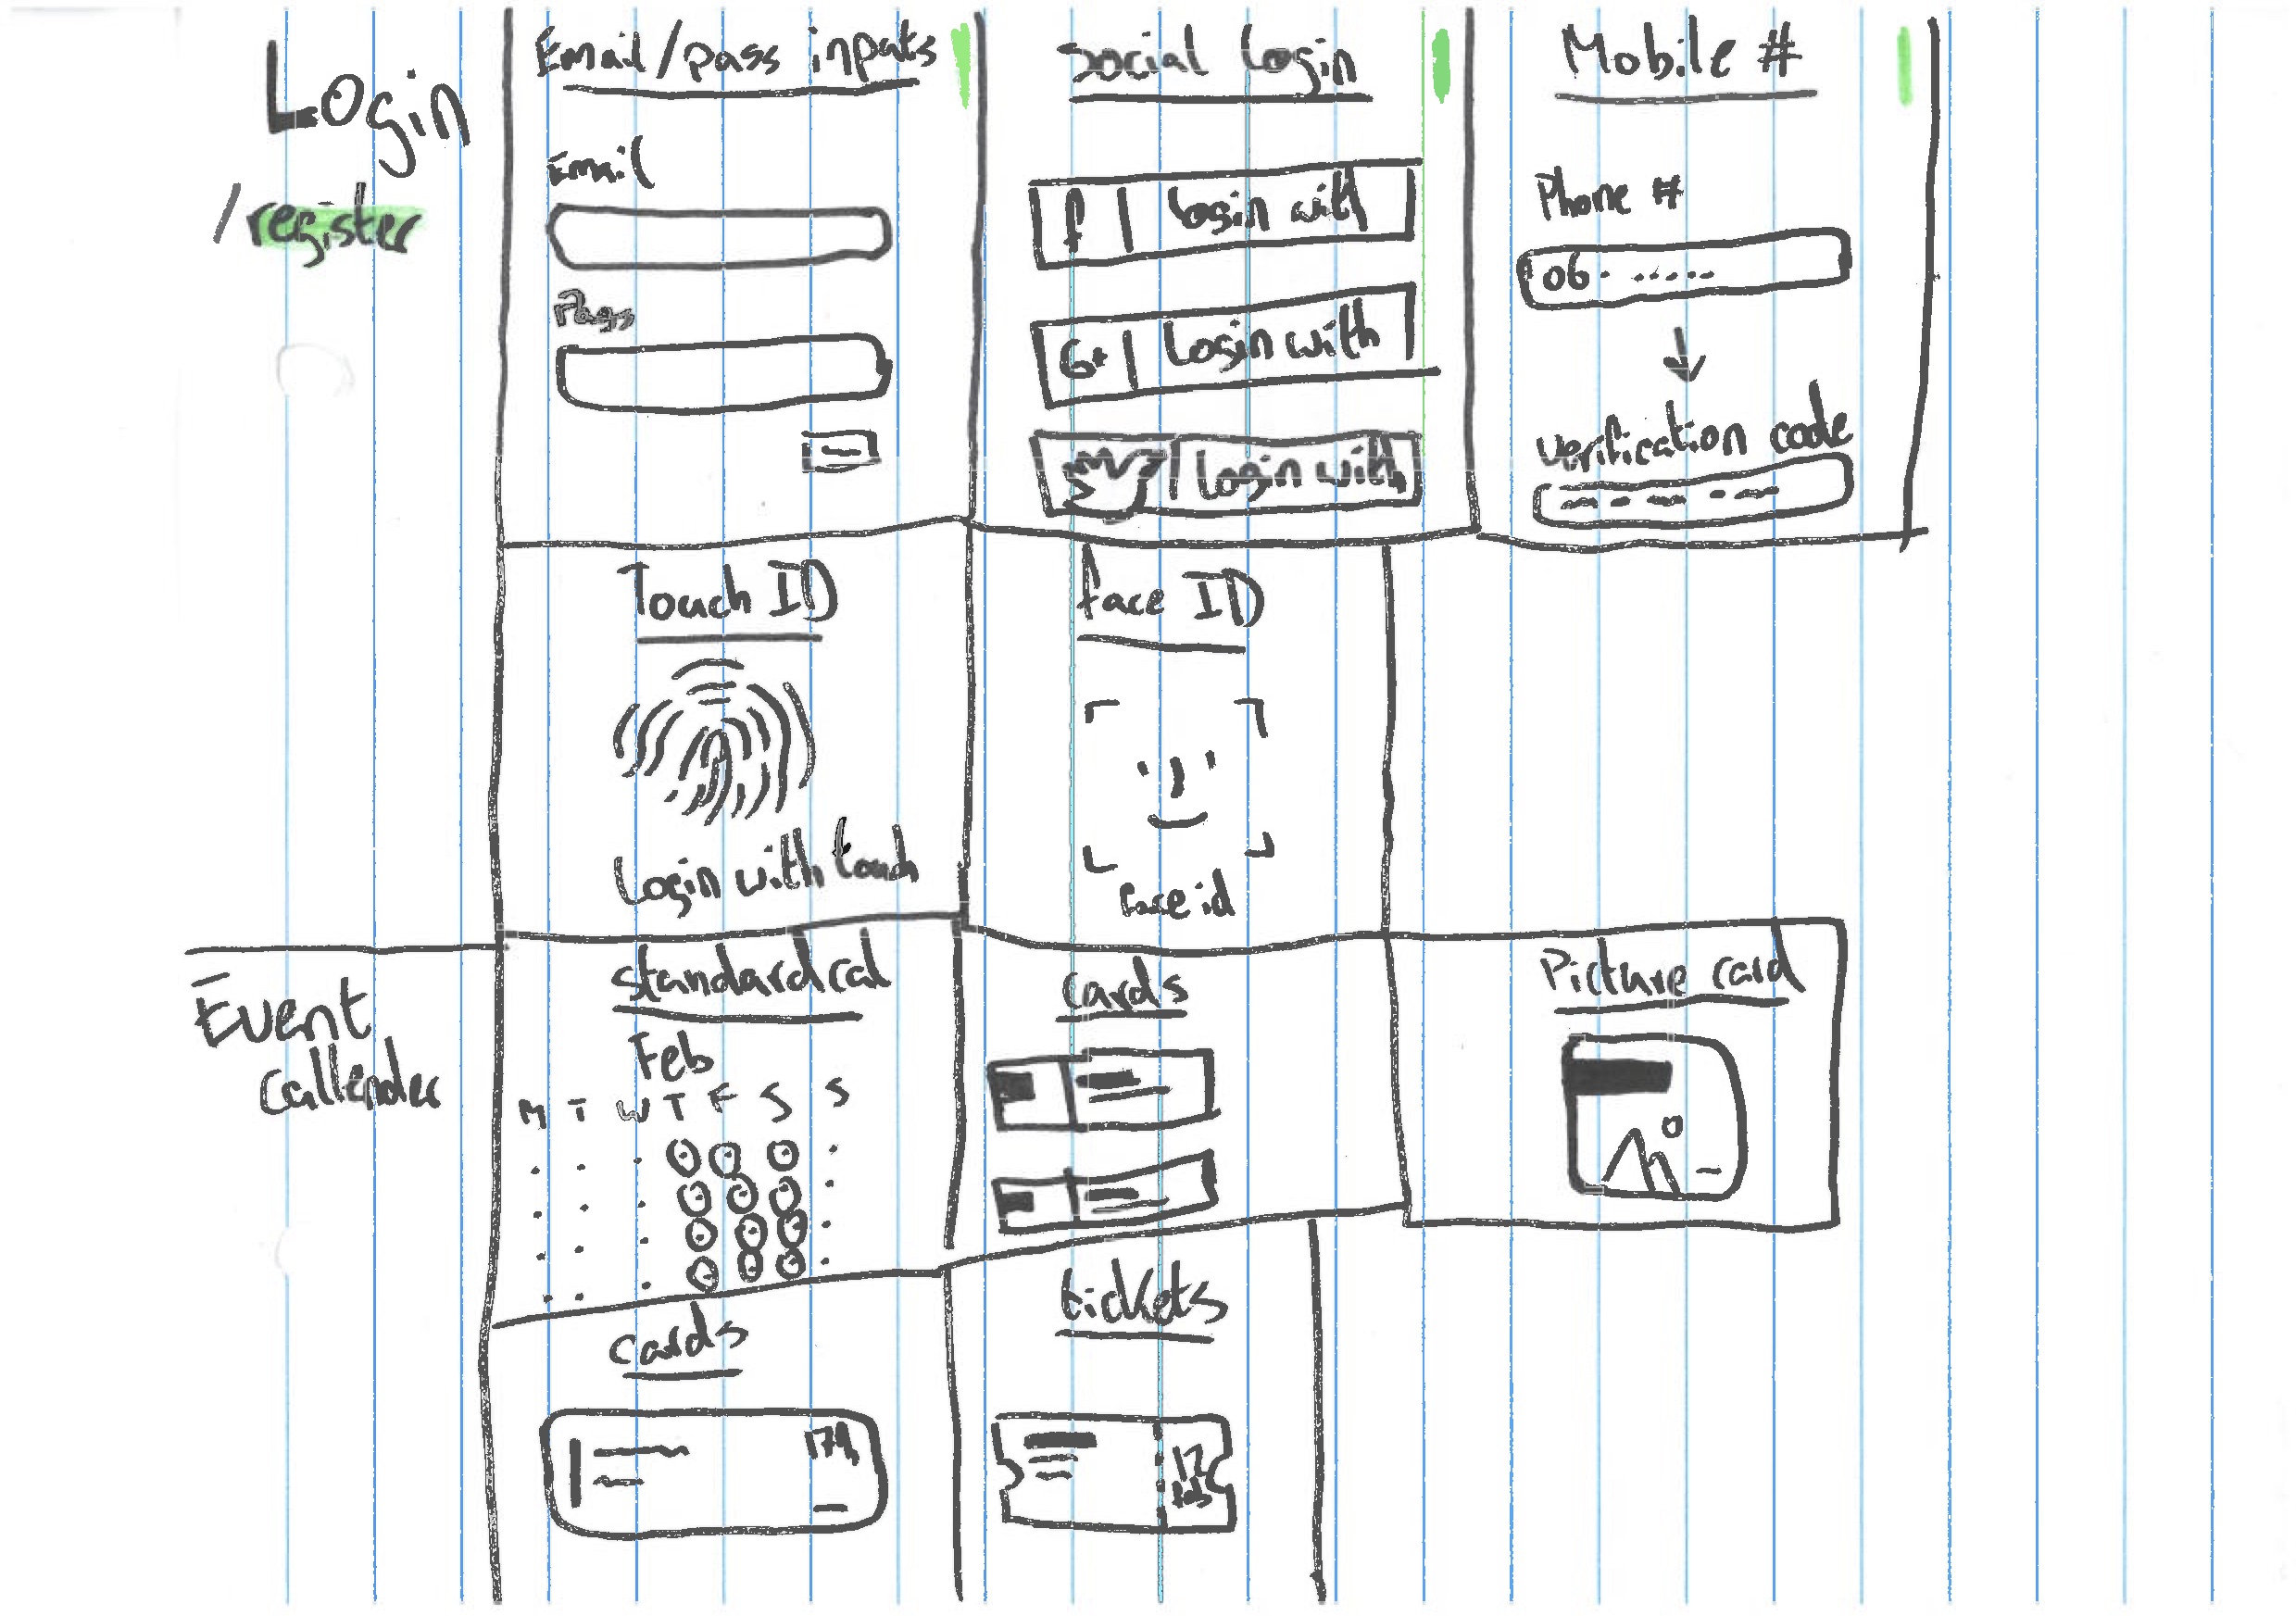 Login
/register
Email/pass inputs
Email
Pass
Social Login
f login with
G+ Login with
Login with
Mobile #
Phone #
06
verification code
Touch ID
Login with touch
face ID
face id
Event
Callender
standard cal
Feb
M T W T F S S
cards
Picture card
cards
tickets
12
feb